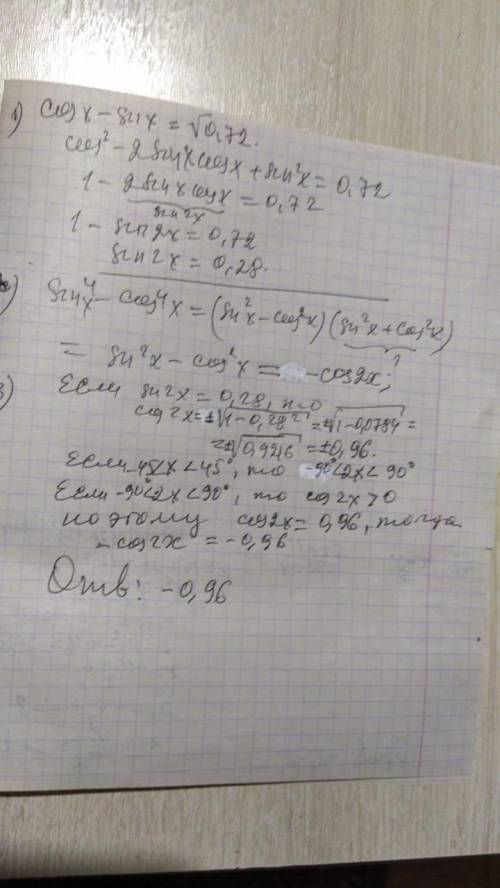 1) cos x - sin x = √0,72.
cos² - 2 sin x cos x + sin²x = 0,72
1 - 2 sin x cos x = 0,72
sin 2x
1 - sin 2x = 0,72
sin 2x = 0,28.
2) sin⁴x - cos⁴x = (sin²x - cos²x)(sin²x + cos²x)
1
= sin²x - cos²x = - cos 2x;
3) Если sin 2x = 0,28, то
cos 2x = ±√1-0,28² = ±√1-0,0784 =
= ±√0,9216 = ±0,96.
Если -45<x<45°, то -90°<2x<90°
Если -90°<2x<90°, то cos 2x > 0
поэтому cos 2x = 0,96, тогда
- cos 2x = -0,96
Отв: -0,96